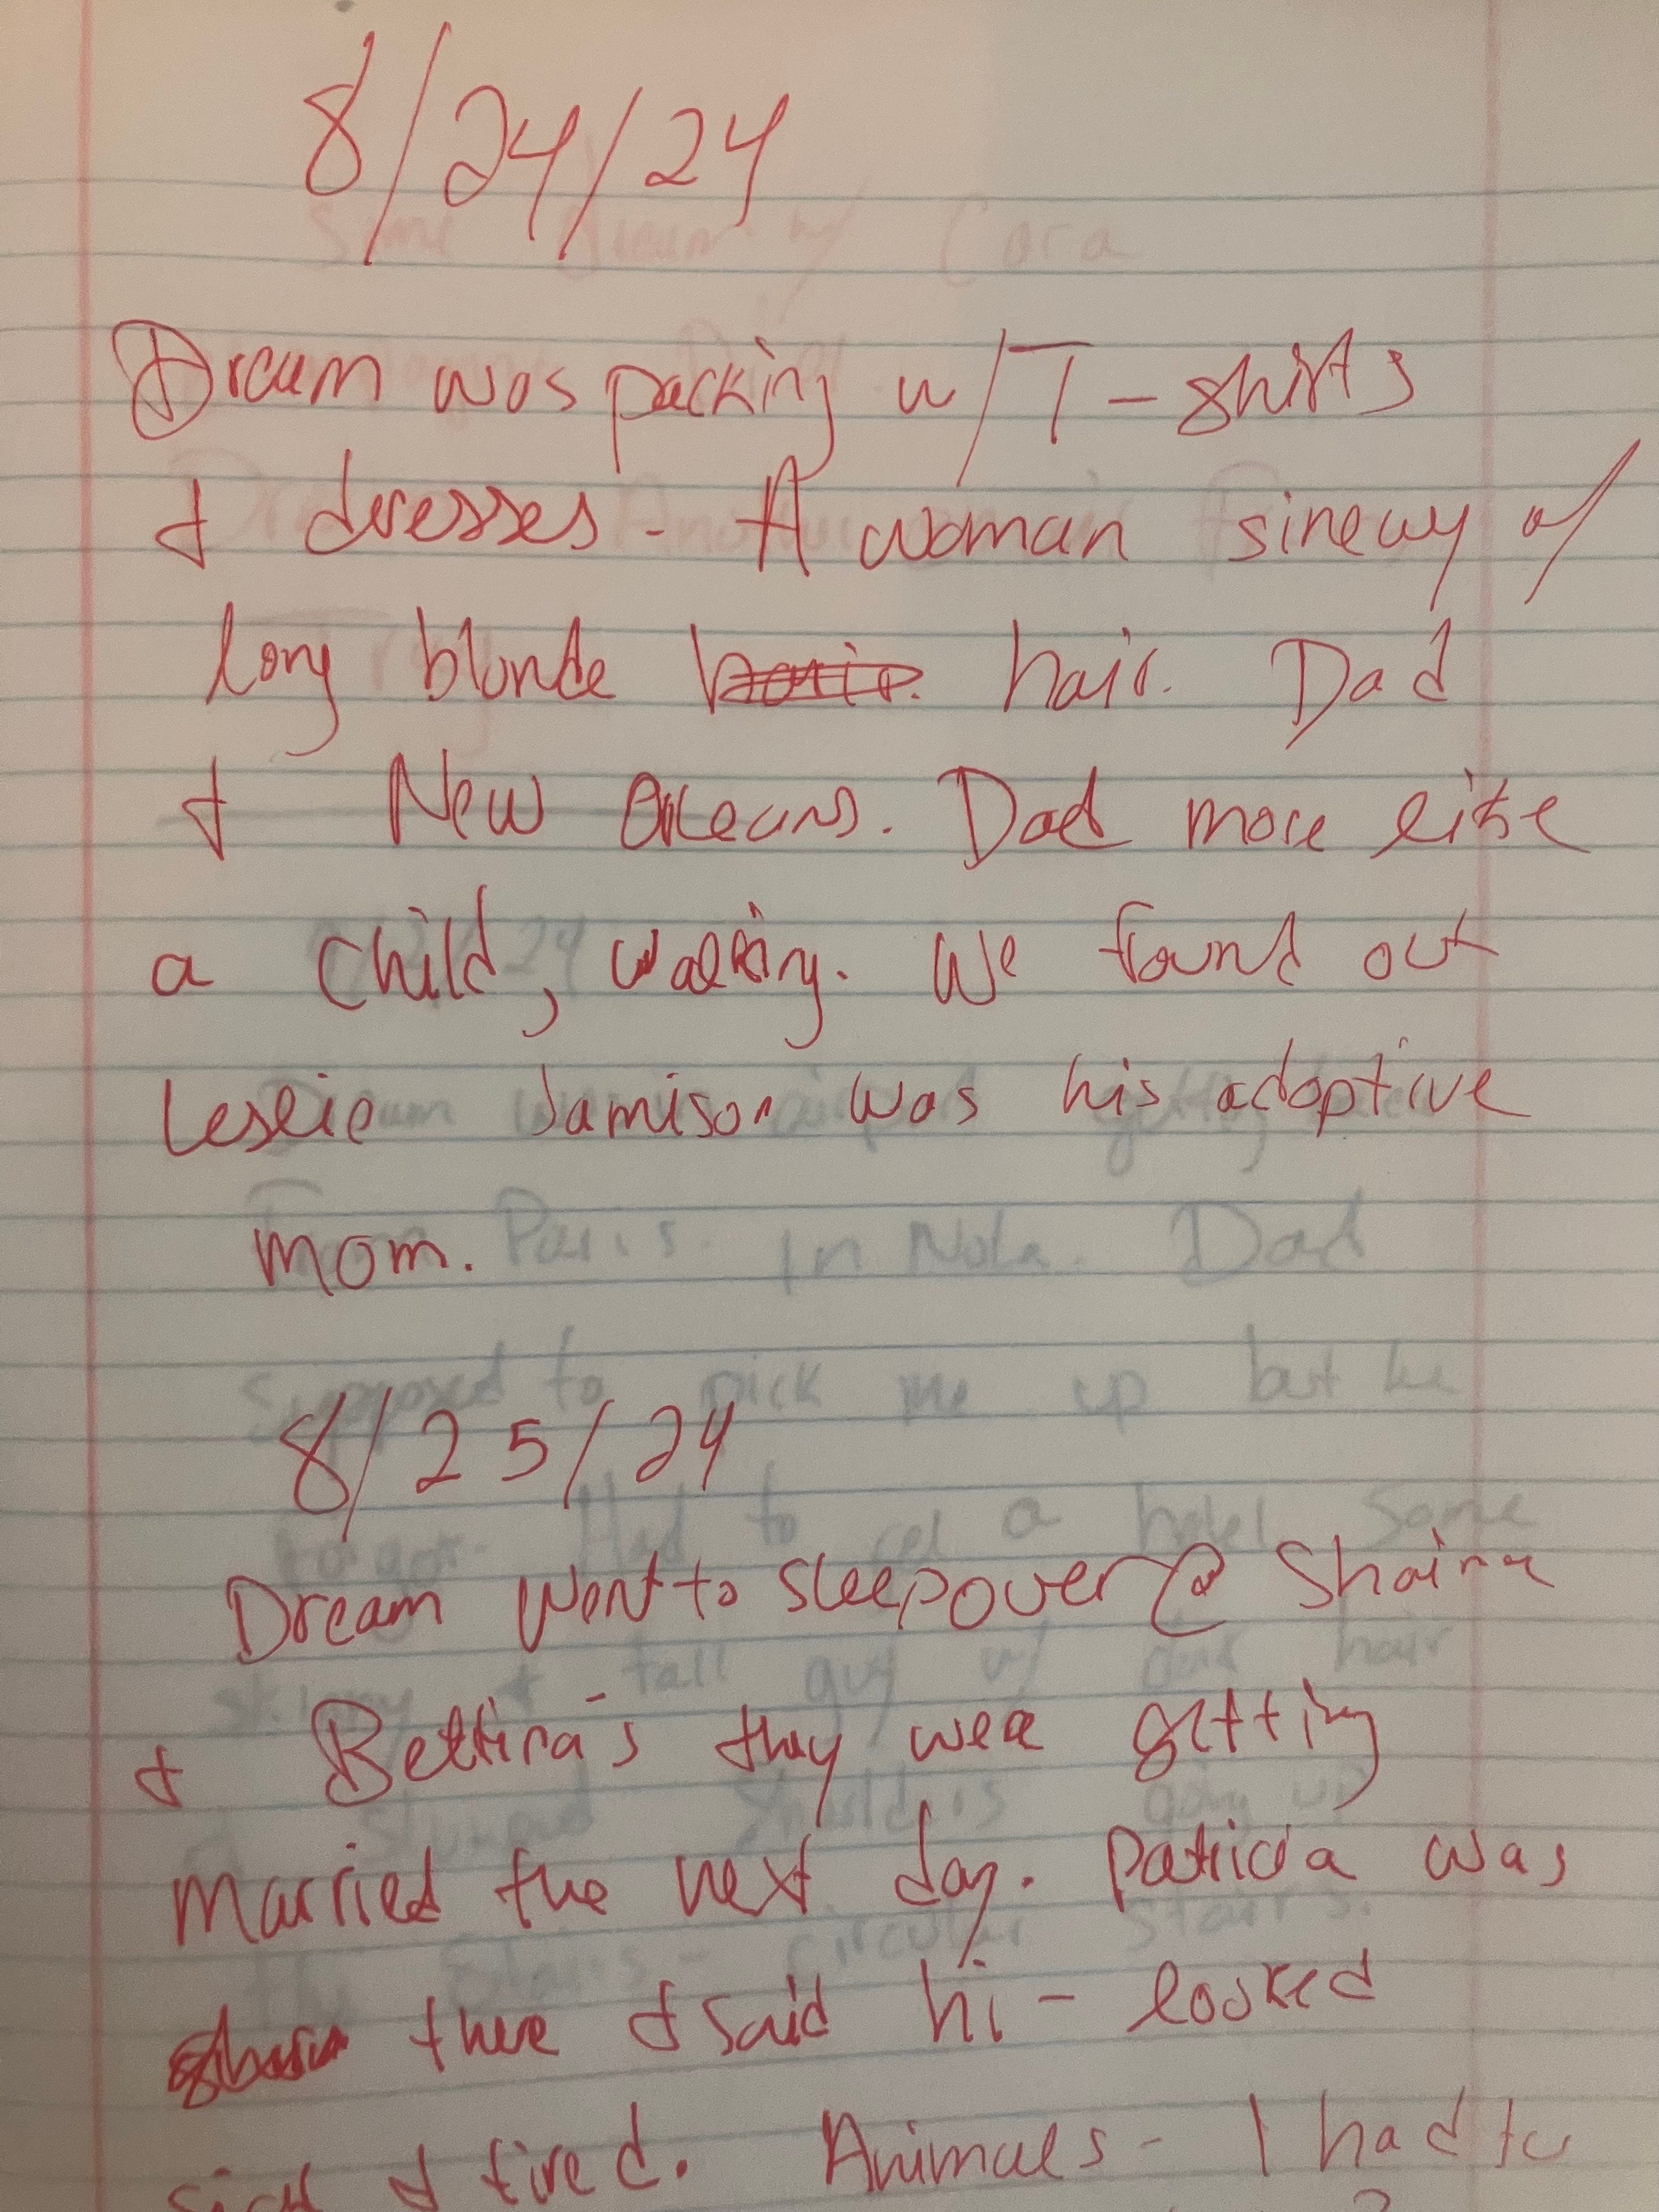 8/24/24
Dream was packing w/ T-shirts
& dresses - A woman sinewy w/
long blonde hair. Dad
& New Orleans. Dad more like
a child, walking. We found out
Leslie Jamison was his adoptive
mom.
8/25/24
Dream went to sleepover @ Shaina
& Bettina's they were getting
married the next day. Patricia was
there & said hi - looked
sick & tired. Animals - I had to